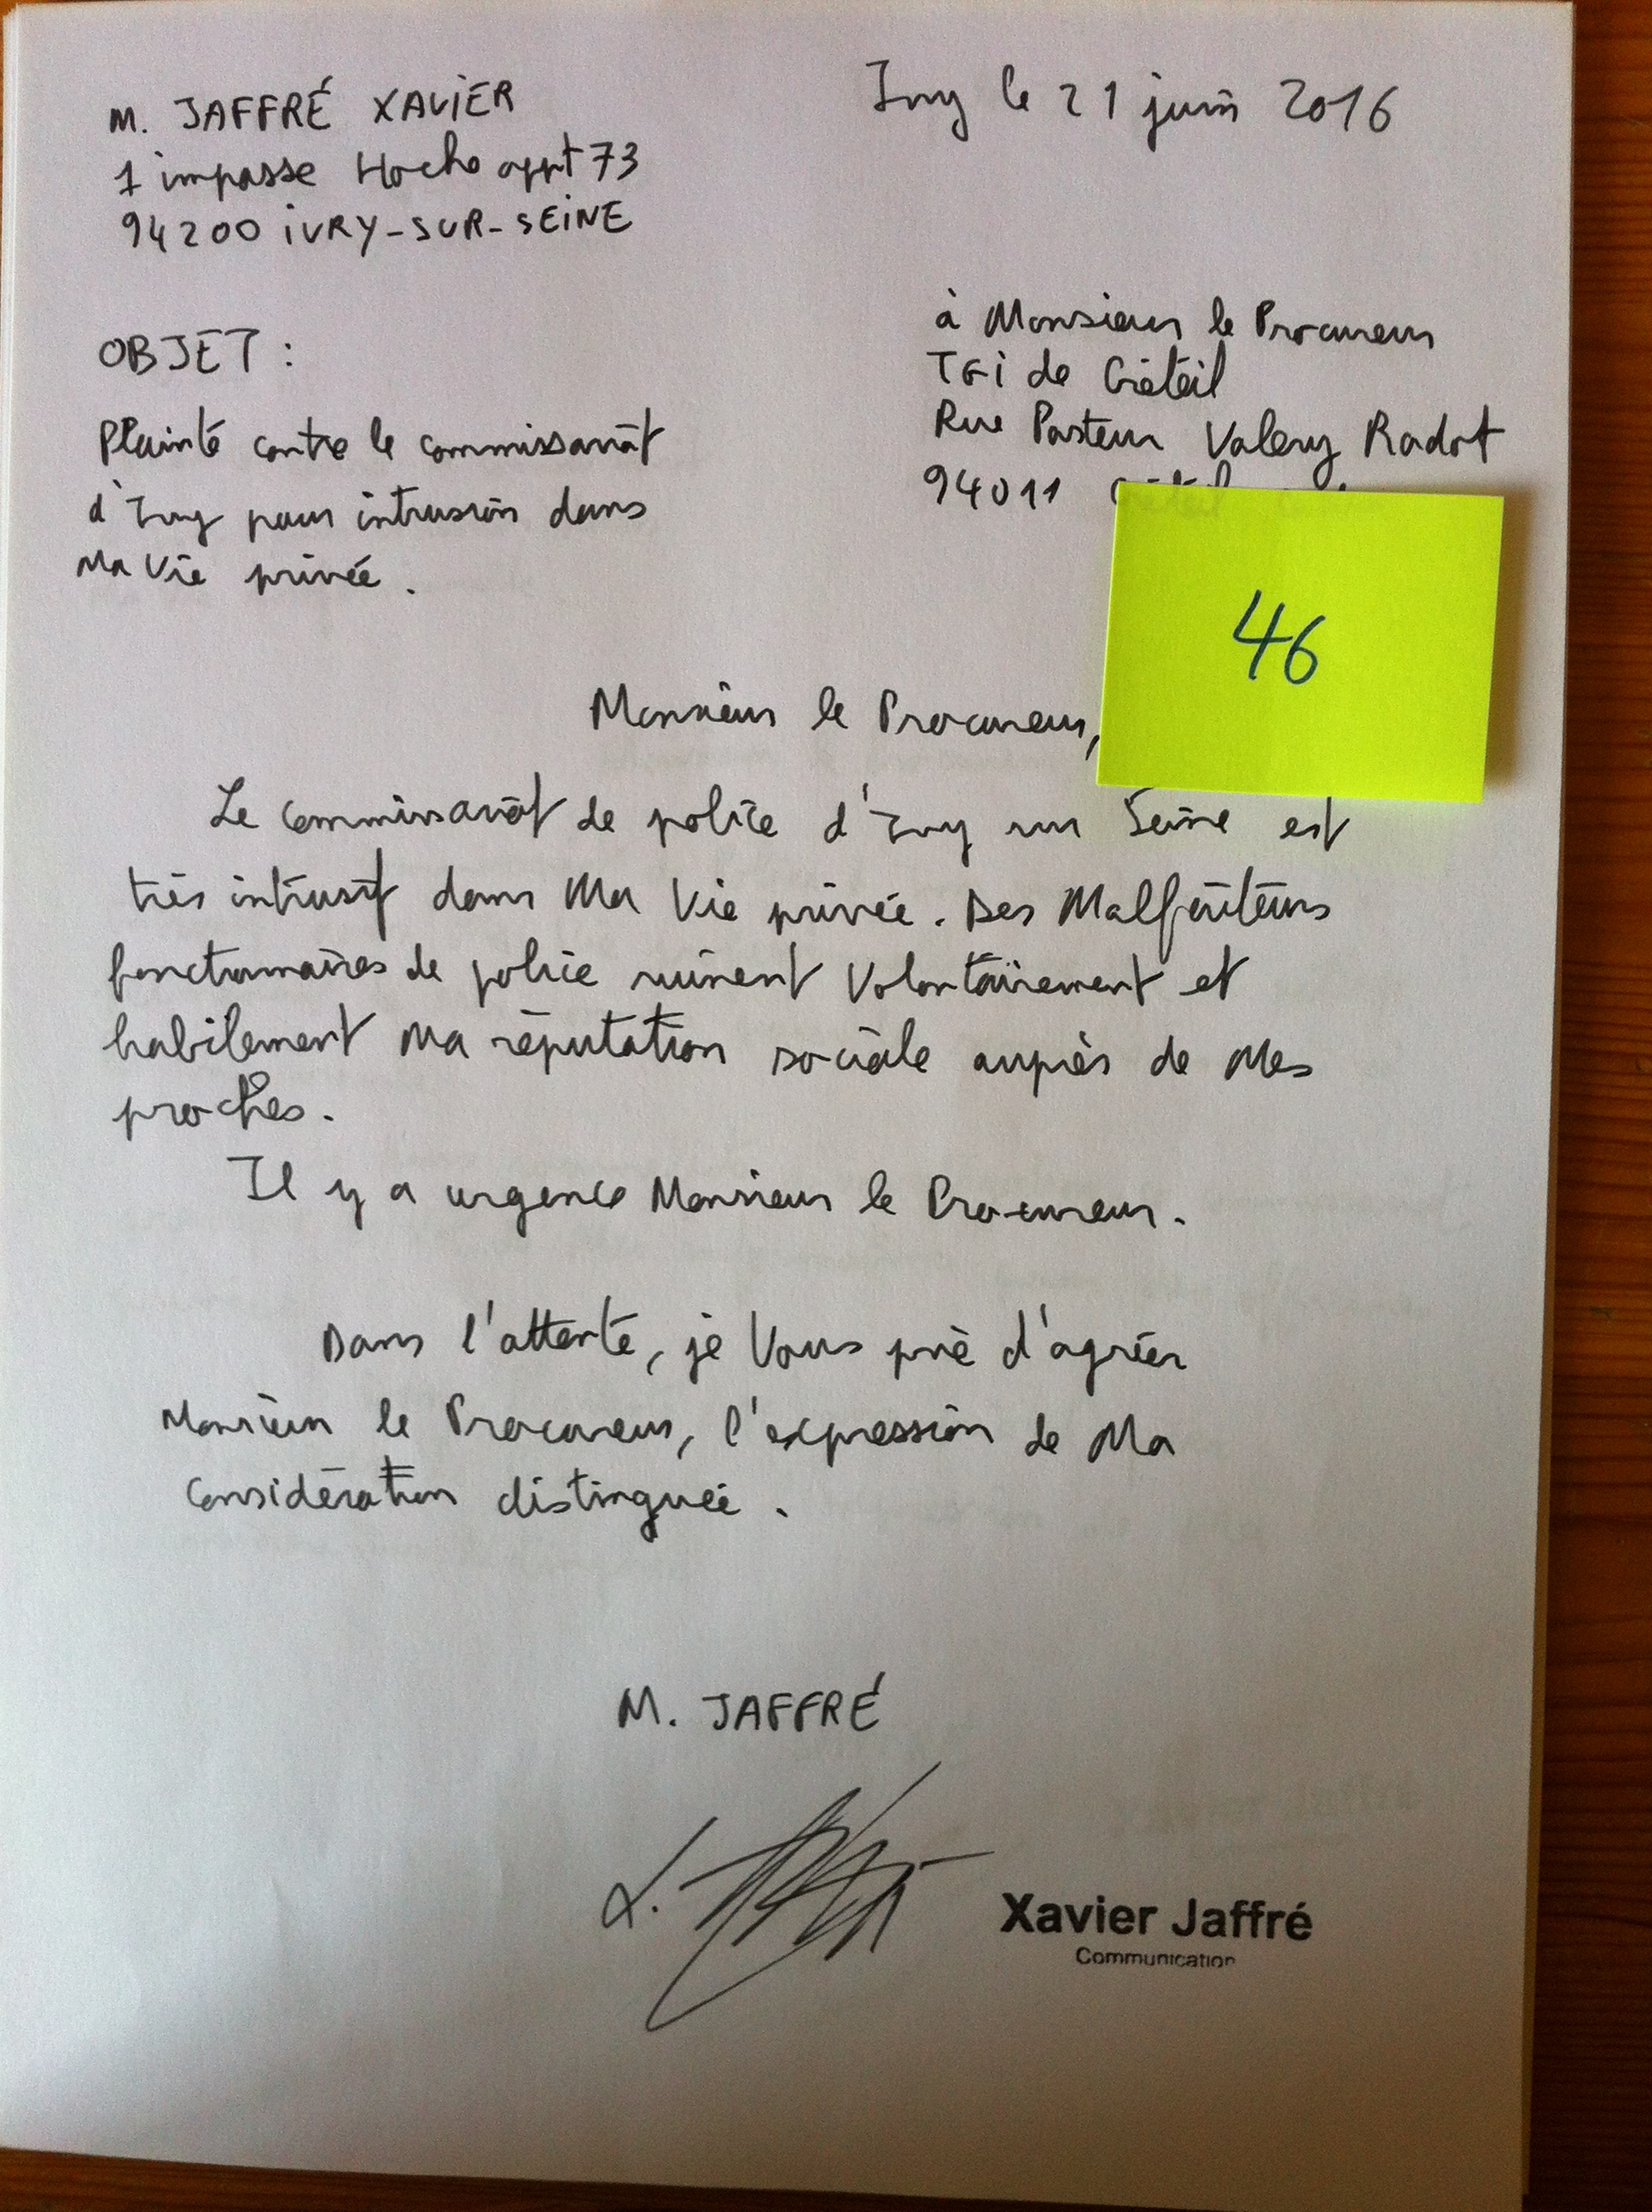 M. JAFFRÉ XAVIER
1 impasse Hoche appt 73
94200 IVRY-SUR-SEINE
Ivry le 21 juin 2016
OBJET :
Plainte contre le commissariat
d'Ivry pour intrusion dans
Ma Vie privée.
à Monsieur le Procureur
TGI de Créteil
Rue Pasteur Valery Radot
94011
46
Monsieur le Procureur,
Le commissariat de police d'Ivry sur Seine est
très intrusif dans Ma Vie privée. Des Malfaiteurs
fonctionnaires de police ruinent Volontairement et
habilement Ma réputation sociale auprès de Mes
proches.
Il y a urgence Monsieur le Procureur.
Dans l'attente, je Vous prie d'agréer
Monsieur le Procureur, l'expression de Ma
Considération distinguée.
M. JAFFRÉ
Xavier Jaffré
Communication